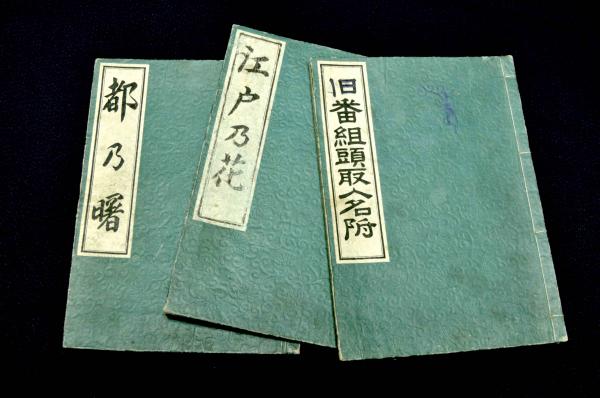 旧番組頭取人名附
江戸乃花
都乃曙